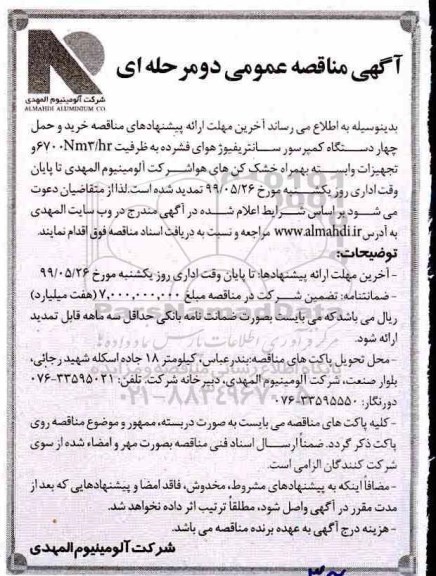 شرکت آلومینیوم المهدی
ALMAHDI ALUMINIUM CO.
آگهی مناقصه عمومی دومرحله ای
بدینوسیله به اطلاع می رساند آخرین مهلت ارائه پیشنهادهای مناقصه خرید و حمل
چهار دستگاه کمپرسور سانتریفیوژ هوای فشرده به ظرفیت ۶۷۰۰Nm۳/hr و
تجهیزات وابسته بهمراه خشک کن های هوا شرکت آلومینیوم المهدی تا پایان
وقت اداری روز یکشنبه مورخ ۹۹/۰۵/۲۶ تمدید شده است. لذا از متقاضیان دعوت
می شود بر اساس شرایط اعلام شده در آگهی مندرج در وب سایت المهدی
به آدرس www.almahdi.ir مراجعه و نسبت به دریافت اسناد مناقصه فوق اقدام نمایند.
توضیحات:
- آخرین مهلت ارائه پیشنهادها: تا پایان وقت اداری روز یکشنبه مورخ ۹۹/۰۵/۲۶
- ضمانتنامه: تضمین شرکت در مناقصه مبلغ ۷,۰۰۰,۰۰۰,۰۰۰ (هفت میلیارد)
ریال می باشد که می بایست بصورت ضمانت نامه بانکی حداقل سه ماهه قابل تمدید
ارائه شود.
- محل تحویل پاکت های مناقصه: بندرعباس، کیلومتر ۱۸ جاده اسکله شهید رجائی،
بلوار صنعت، شرکت آلومینیوم المهدی، دبیرخانه شرکت. تلفن: ۳۳۵۹۵۰۲۱-۰۷۶
دورنگار: ۳۳۵۹۵۵۵۰-۰۷۶
- کلیه پاکت های مناقصه می بایست به صورت دربسته، ممهور و موضوع مناقصه روی
پاکت ذکر گردد. ضمناً ارسال اسناد فنی مناقصه بصورت مهر و امضاء شده از سوی
شرکت کنندگان الزامی است.
- مضافاً اینکه به پیشنهادهای مشروط، مخدوش، فاقد امضا و پیشنهادهایی که بعد از
مدت مقرر در آگهی واصل شود، مطلقاً ترتیب اثر داده نخواهد شد.
- هزینه درج آگهی به عهده برنده مناقصه می باشد.
شرکت آلومینیوم المهدی